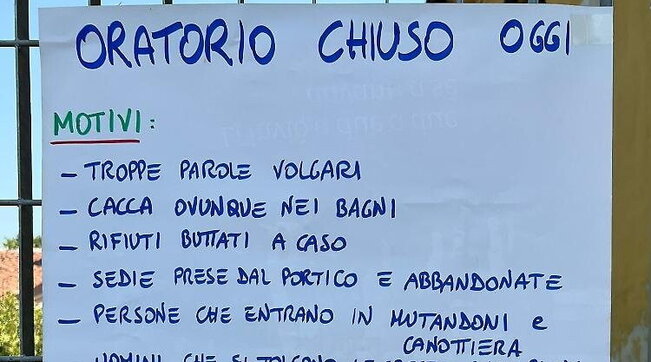 ORATORIO CHIUSO OGGI
MOTIVI:
- TROPPE PAROLE VOLGARI
- CACCA OVUNQUE NEI BAGNI
- RIFIUTI BUTTATI A CASO
- SEDIE PRESE DAL PORTICO E ABBANDONATE
- PERSONE CHE ENTRANO IN MUTANDONI e
CANOTTIERA
- UOMINI CHE SI TOLGONO